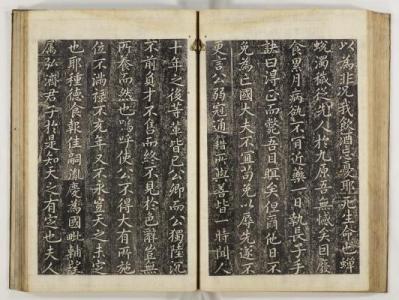 以為非況我飲酒忘憂耶死生命也蟬
蛻濁穢從先人於九原吾無憾矣因廢
食累月病不肯近藥一日執長子手
訣曰得正而斃吾目瞑矣但爾他日不
免為亡國大夫不宜苟免以辱先遂不
更言公弱冠通籍所與善皆一時聞人
十年之後等輩皆已公卿而公獨陸沉
不前負才不而終不見於色辭豈無
所養而然也嗚呼使公不得大有所施
位不滿祿不充年又不永豈天之未定
也耶種德食報佳嗣胤慶為國毗輔
厲弘濟君子於是知天之有定也夫人